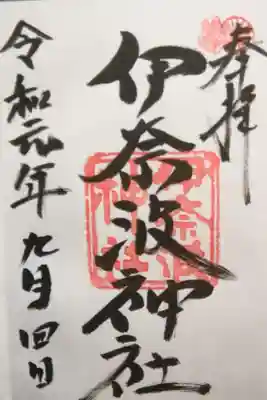 奉拝
伊奈波神社
伊奈波神社
令和元年九月四日